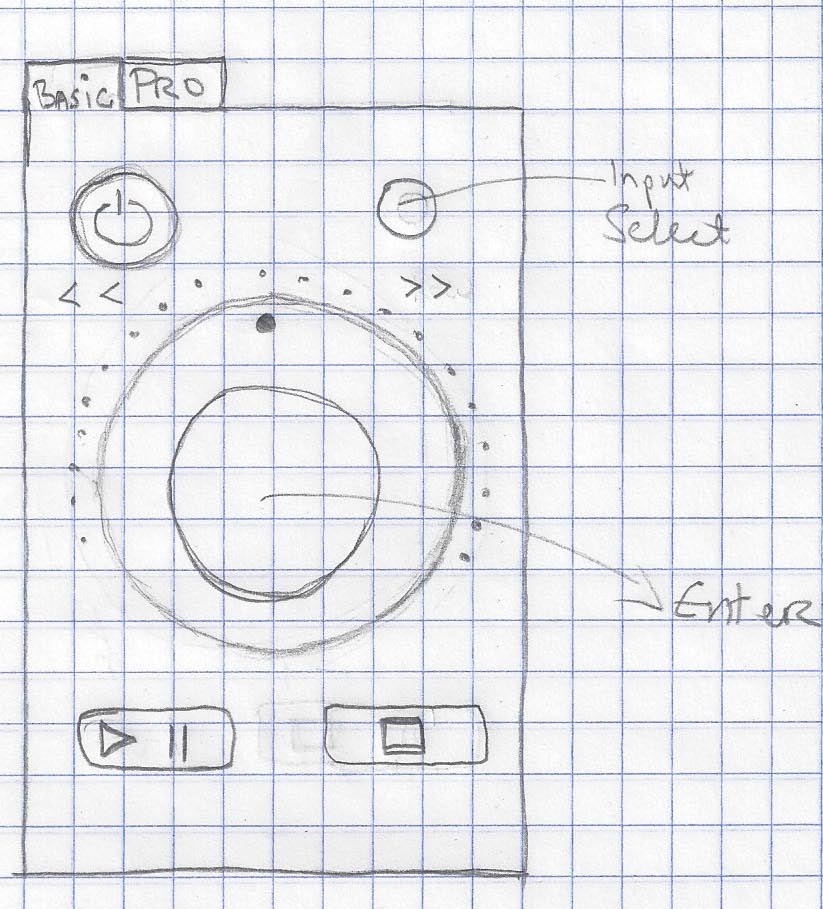 BASIC PRO
Input
Select
<< >>
Enter